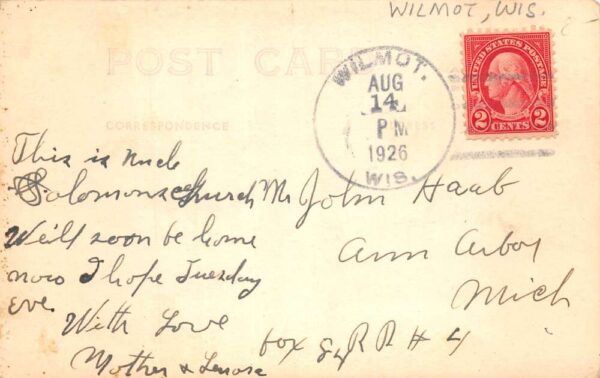 WILMOT, WIS.
POST CARD
CORRESPONDENCE
WILMOT.
AUG
14
PM
1926
WIS.
UNITED STATES POSTAGE
2 CENTS 2
This is Uncle
Solomons church
We'll soon be home
now I hope Tuesday
eve.
With Love
Mother & Lenora
Mr John Haab
Ann Arbor
Mich
box 84 R R # 4